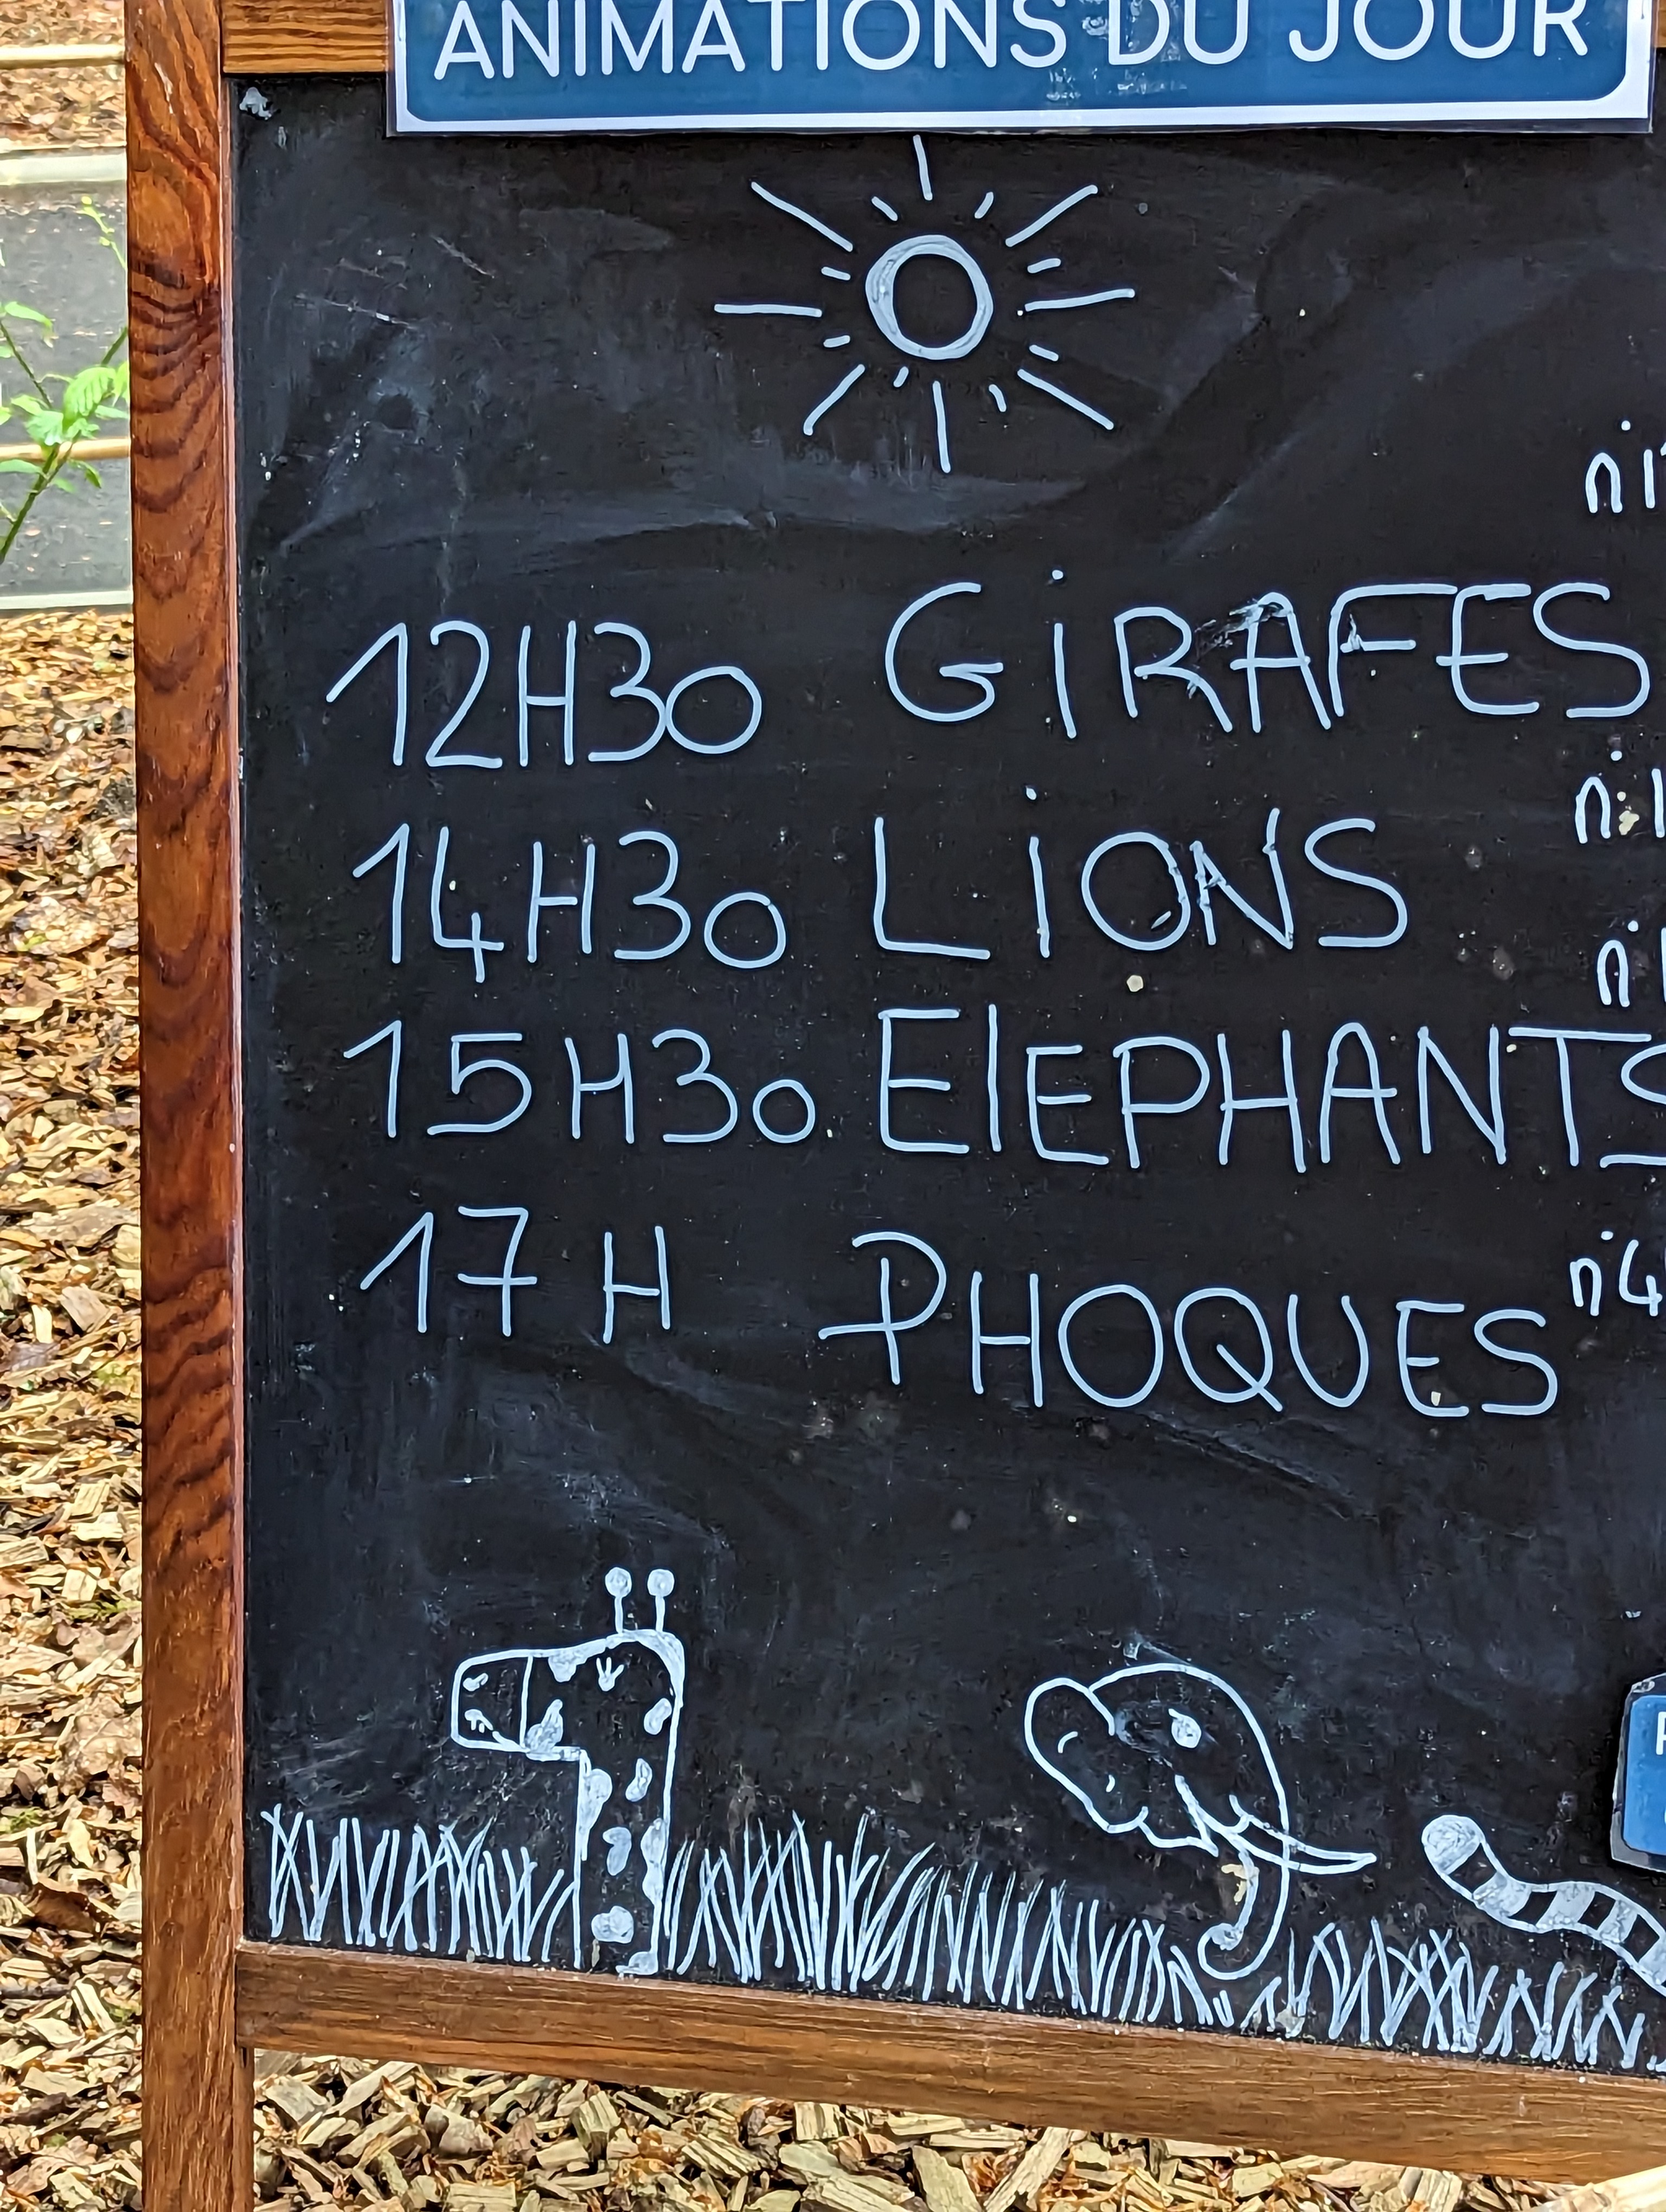 ANIMATIONS DU JOUR
12H30 GiRAFES
14H30 LiONS
15H30 ElEPHANTS
17H PHOQUES